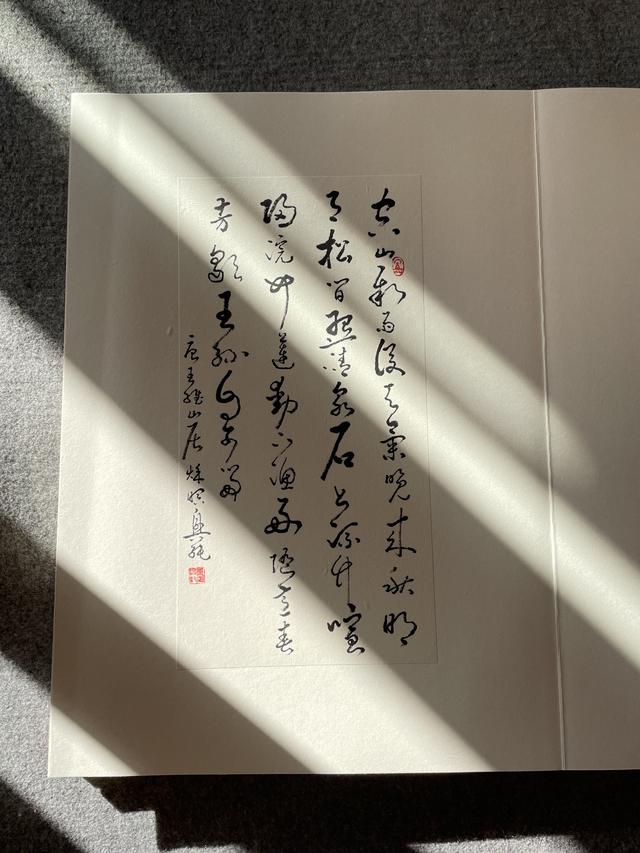 空山新雨後天氣晚來秋明
月松間照清泉石上流竹喧
歸浣女蓮動下漁舟隨意春
芳歇王孫自可留
唐王維山居秋暝